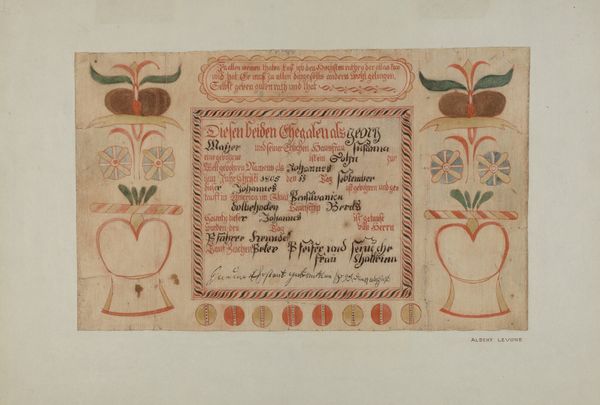 In allen meinen thaten Laß ich den Höchsten rathen der alles kan
und hat Er muß zu allen dingen solls anders wohl gelingen.
Selbst geben guten rath und that
Diesen beiden Ehegaten als Georg
Mayer und seiner Ehlichen Hausfrau Susanna
eine gebohrne ist ein Sohn zur
Welt gebohren Namens als Johannes
im Jahr Christi 1808 den 15 Tag September
dieser Johannes ist gebohren und ge
tauft in America im Staat Pensilvanien
Taunschip Berks
County dieser Johannes ist getauft
worden den Tag von Herrn
Pfahrer
Tauf Zeugen Peter Pfeifer und seine
frau Chatarina
ALBERT LEVONE